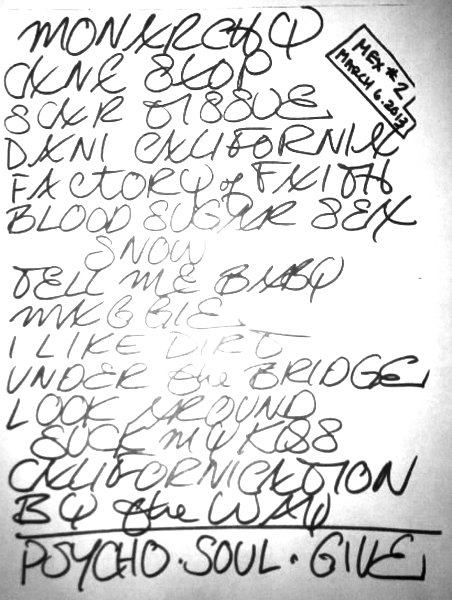 MONARCHY
MEX #2
MARCH 6.2013
CAN'T STOP
SCAR TISSUE
DANI CALIFORNIA
FACTORY of FAITH
BLOOD SUGAR SEX
SNOW
TELL ME BABY
MAGGIE
I LIKE DIRT
UNDER the BRIDGE
LOOK AROUND
SUCK MY KISS
CALIFORNICATION
BY the WAY
PSYCHO. SOUL. GIVE